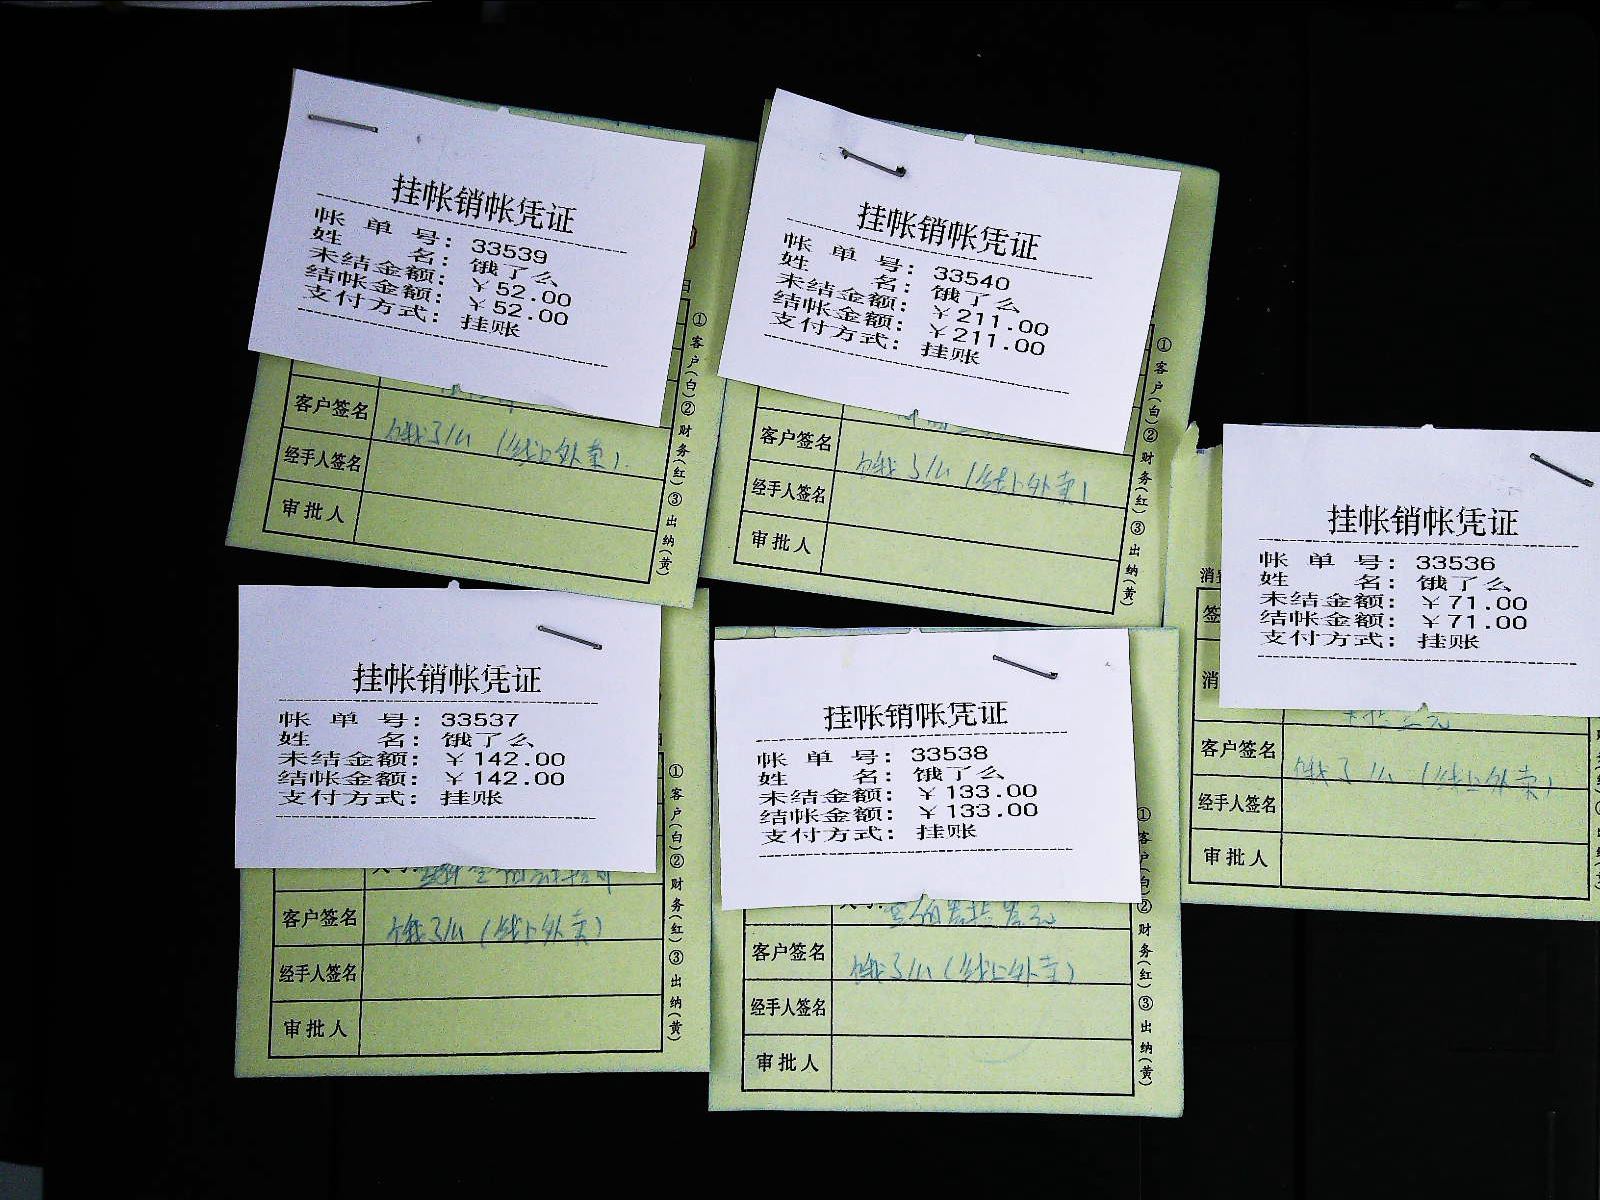 挂帐销帐凭证
帐单号：33539
姓名：饿了么
未结金额：￥52.00
结帐金额：￥52.00
支付方式：挂账
客户签名 饿了么（线上外卖）
经手人签名
审批人
①客户(白)②财务(红)③出纳(黄)
挂帐销帐凭证
帐单号：33540
姓名：饿了么
未结金额：￥211.00
结帐金额：￥211.00
支付方式：挂账
客户签名 饿了么（线上外卖）
经手人签名
审批人
①客户(白)②财务(红)③出纳(黄)
挂帐销帐凭证
帐单号：33536
姓名：饿了么
未结金额：￥71.00
结帐金额：￥71.00
支付方式：挂账
消
签
消
客户签名 饿了么（线上外卖）
经手人签名
审批人
挂帐销帐凭证
帐单号：33537
姓名：饿了么
未结金额：￥142.00
结帐金额：￥142.00
支付方式：挂账
客户签名 饿了么（线上外卖）
经手人签名
审批人
①客户(白)②财务(红)③出纳(黄)
挂帐销帐凭证
帐单号：33538
姓名：饿了么
未结金额：￥133.00
结帐金额：￥133.00
支付方式：挂账
客户签名 饿了么（线上外卖）
经手人签名
审批人
①客户(白)②财务(红)③出纳(黄)